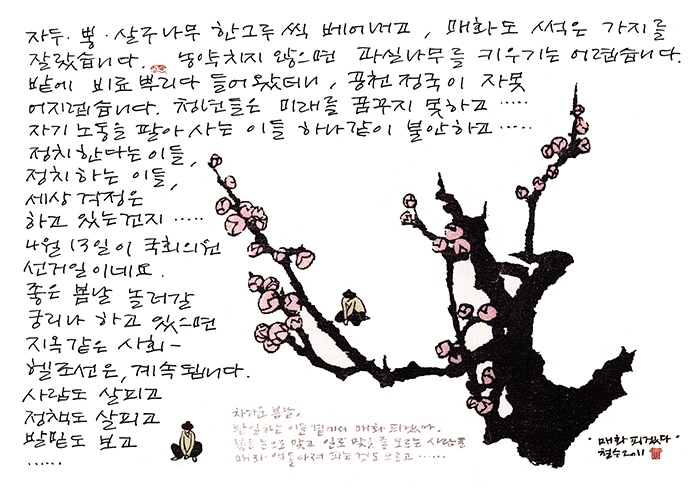 자두·뽕·살구나무 한그루씩 베어내고, 매화도 썩은 가지를
잘랐습니다. 농약치지 않으면 과실나무를 키우기는 어렵습니다.
밭에 비료 뿌리다 들어왔더니, 공천정국이 자못
어지럽습니다. 청년들은 미래를 꿈꾸지 못하고 ·····
자기 노동을 팔아 사는 이들 하나같이 불안하고 ·····
정치한다는 이들,
정치하는 이들,
세상 걱정은
하고 있는건지 ·····
4월 13일이 국회의원
선거일이네요.
좋은 봄날 놀러갈
궁리나 하고 있으면
지옥같은 사회-
헬조선은, 계속됩니다.
사람도 살피고
정책도 살피고
발밑도 보고
······
차가운 봄날,
밭일하는 이들 곁에서 매화 피겠다.
봄을 눈으로 맞고 일로 맞을 줄 모르는 사람들
매화 앞들아 피는 것도 모르고 ······
·매화 피겠다·
철수 2011